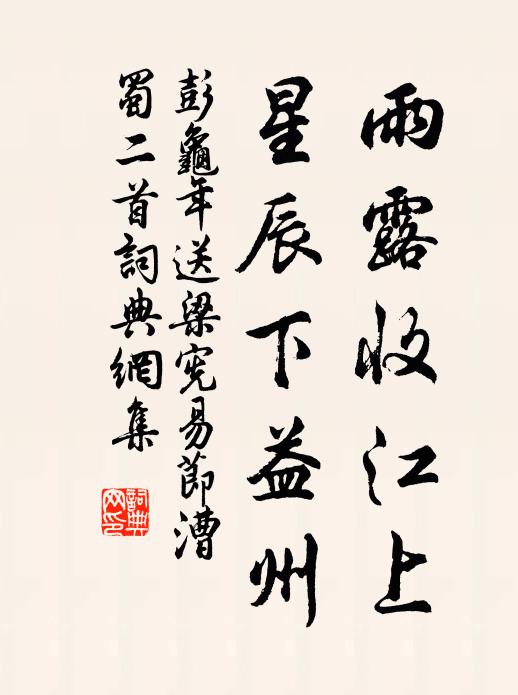 雨露收江上
星辰下益州
彭龜年送梁宪易節漕
蜀二首詞典網集
詞典网印